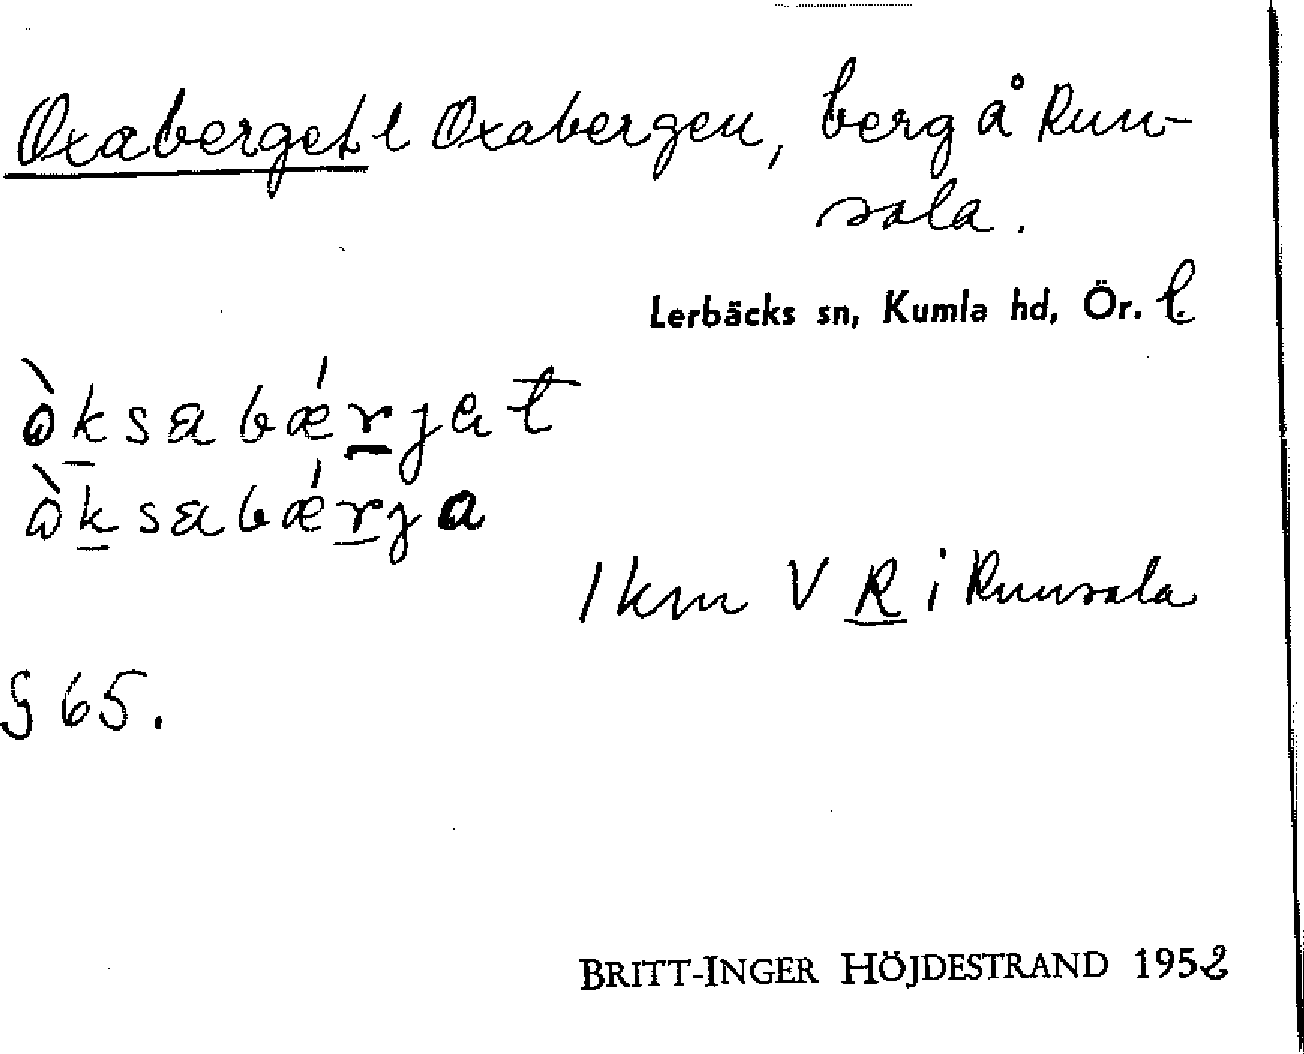 Oxaberget l Oxabergen, berg å Run-
sala.
Lerbäcks sn, Kumla hd, Ör. l.
òksabǽrjat
òksabǽrja
1 km V R i Runsala
§ 65.
BRITT-INGER HÖJDESTRAND 1952